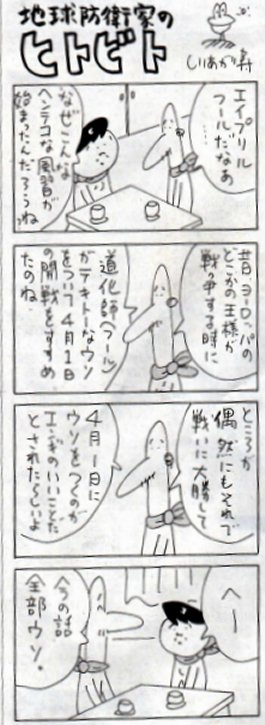 地球防衛家の
ヒトビト
しりあがり寿
エイプリル
フールだなあ
…
なぜこんな
ヘンテコな風習が
始まったんだろうね
昔ヨーロッパの
どこかの王様が
戦争する時に
道化師(フール)
がテキトーなウソ
をついて4月1日
の開戦をすすめ
たのね
ところが
偶然にもそれで
戦いに大勝して
4月1日に
ウソをつくのが
エンギのいいことだ
とされたらしいよ
へー
今の話
全部ウソ。